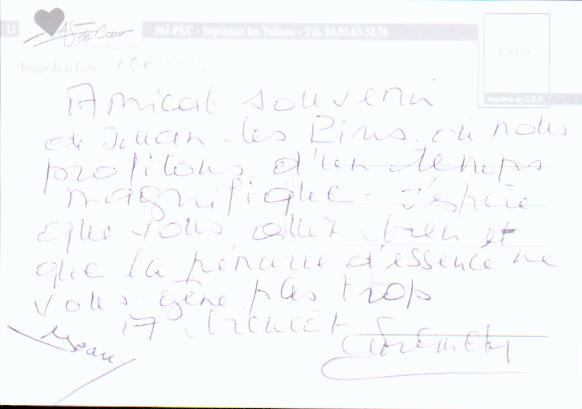 As de Coeur
Sté PEC - Septèmes les Vallons - Tél. 04.91.65.32.76
Image de la Côte
Amical souvenir
de Juan les Pins où nous
profitons d'un temps
magnifique - J'espère
que vous allez bien et
que la pénurie d'essence ne
vous gêne pas trop
A bientôt
Jean